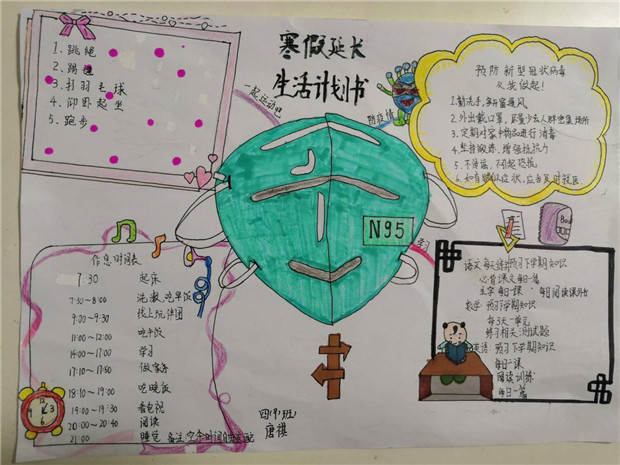 寒假延长
生活计划书
1、跳绳
2、踢毽
3、打羽毛球
4、仰卧起坐
5、跑步
一起运动吧
防疫情
预防新型冠状病毒
从我做起!
1.勤洗手,多开窗通风
2.外出戴口罩,尽量少去人群密集场所
3.定期对家中物品进行消毒
4.坚持锻炼,增强抵抗力
5.不传谣,不引起恐慌
6.如有疑似症状,应当及时就医
N95
学习
作息时间表
7:30 起床
7:30～8:00 洗漱、吃早饭
9:00～9:30
11:00～12:00 吃午饭
16:00～17:00 学习
17:10～17:50 做家务
18:10～19:00 吃晚饭
19:00～19:30 看电视
20:00～20:40 阅读
21:00 睡觉
语文:每天练预习下学期知识
必背课文每日一篇
生字每日一课 每日阅读课外书
数学:预习下学期知识
每3天一单元
练习相关测试题
英语:预习下学期知识
每日一课
阅读训练
每日一篇
四(1)班
唐祺